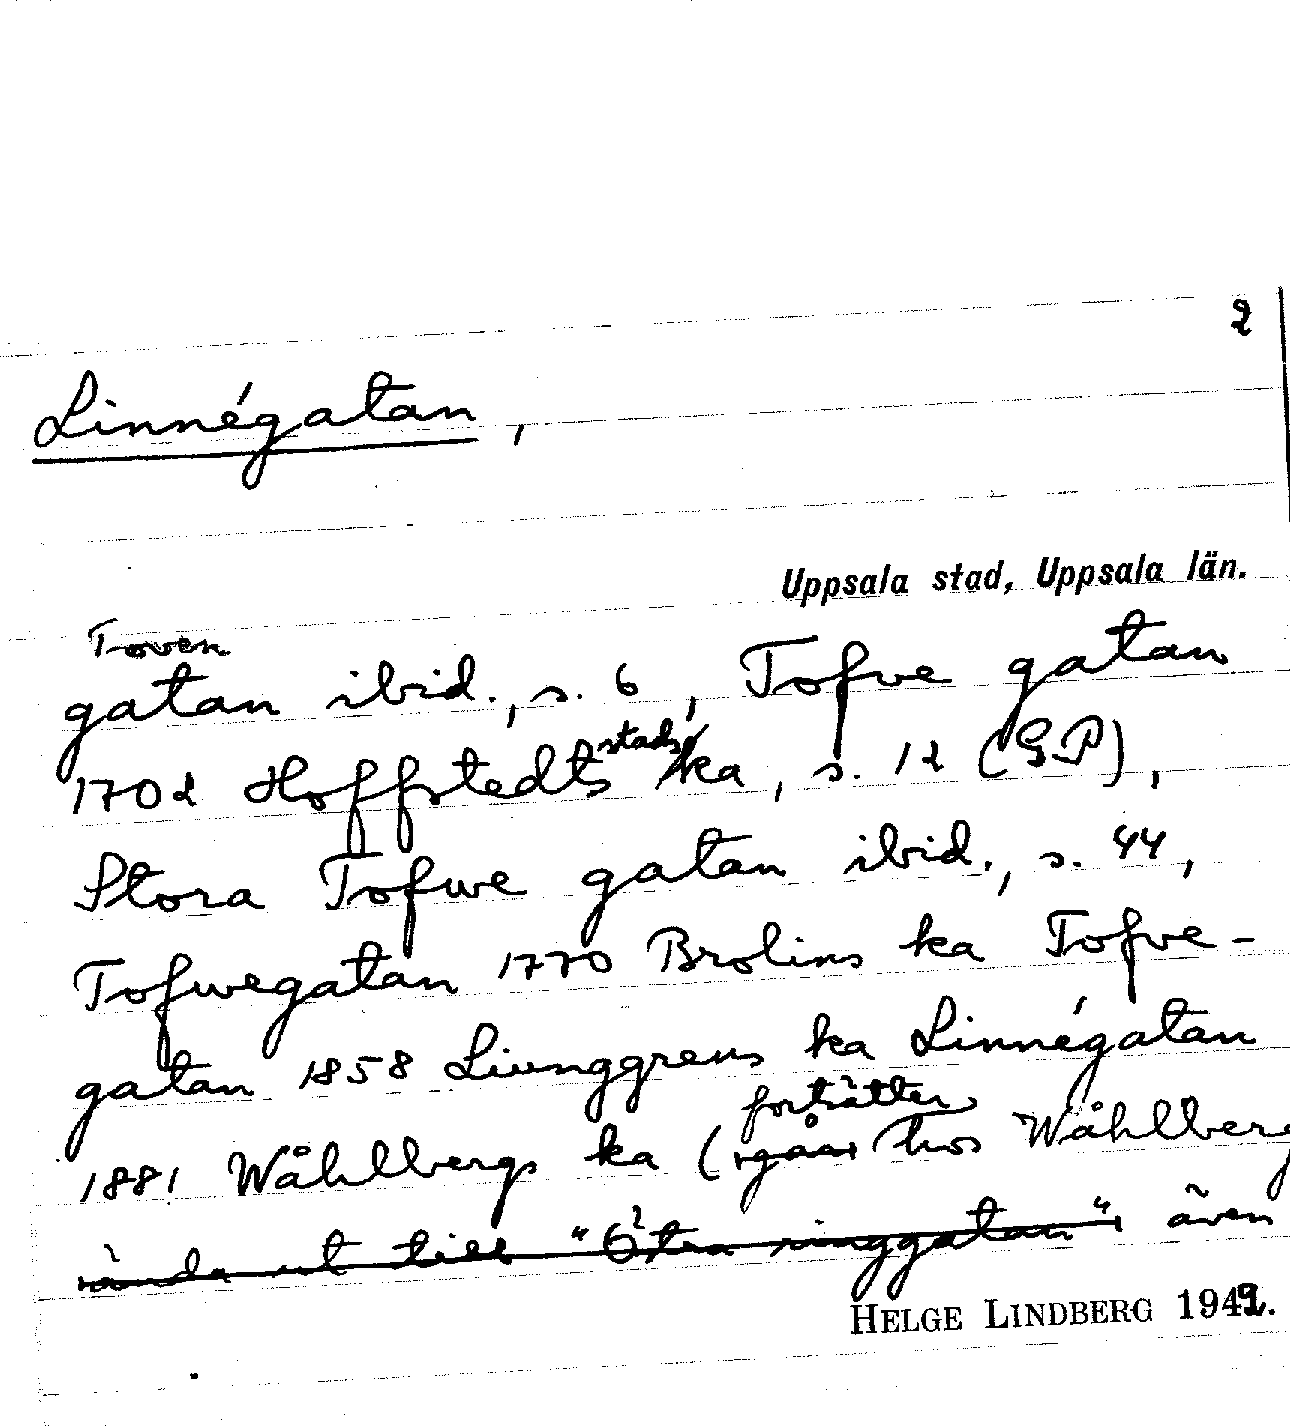 2
Linnégatan,
Uppsala stad, Uppsala län.
Toven
gatan ibid., s. 6, Tofve gatan
1702 Hoffstedts stadska, s. 12 (GP),
Stora Tofwe gatan ibid., s. 44,
Tofwegatan 1770 Brolins ka Tofve-
gatan 1858 Liunggrens ka Linnégatan
1881 Wåhlbergs ka (går fortsätter hos Wåhlberg
ända ut till "Östra ringgatan" även
HELGE LINDBERG 1942.